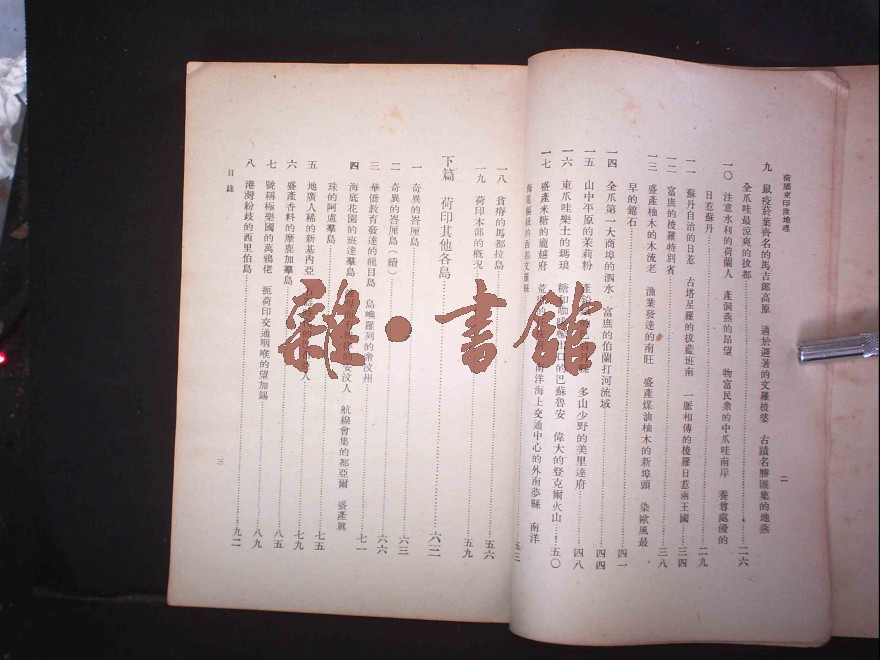 荷屬東印度地理
二
九 鼠疫於葉齊名的馬吉郎高原 適於避暑的文羅梭婆 古蹟名勝匯集的地燕
全爪哇最涼爽的拔都……二六
一〇 注意水利的荷蘭人 產燕的昂望 物富民衆的中爪哇南岸 養尊處優的
日惹蘇丹……二九
一一 蘇丹自治的日惹 古塔星羅的拔藍班南 一脈相傳的梭羅日惹兩王國……三四
一二 富庶的梭羅特別省……三八
一三 盛產柚木的木流老 漁業發達的南旺 盛產煤油柚木的新埠頭 染歐風最
早的錦石……四一
一四 全爪第一大商埠的泗水 富庶的伯蘭打河流域……四四
一五 山中平原的茉莉粉 多山少野的美里達府……四八
一六 東爪哇樂土的瑪琅 糖和咖啡出口的巴蘇魯安 偉大的登克爾火山……五〇
一七 盛產米糖的龐越府 南洋海上交通中心的外南夢縣 南洋
……五三
一八 貧瘠的馬都拉島……五六
一九 荷印本部的概况……五九
下篇 荷印其他各島……六二
一 奇異的峇厘島……六三
二 奇異的峇厘島(續)……六六
三 華僑教育發達的龍目島 島嶼羅列的帝汶州……七一
四 海底花園的班達羣島 安汶人 航線會集的都亞爾 盛產眞
珠的阿盧羣島……七五
五 地廣人稀的新基內亞……七九
六 盛產香料的摩鹿加羣島……八五
七 號稱極樂國的萬鴉佬 扼荷印交通咽喉的望加錫……八九
八 港灣紛歧的西里伯島……九二
目錄
三
雜·書館